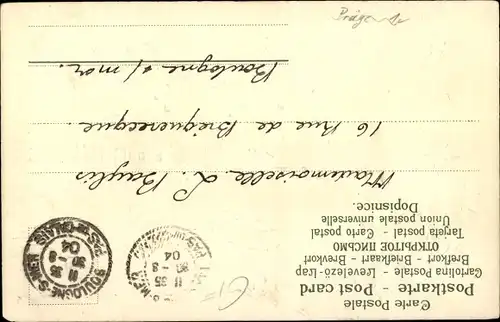 Carte Postale
Postkarte - Post card
Cartolina Postale - Levelező-Lap
Brefkort - Briefkaart - Brevkort
ОТКРЫТОЕ ПИСЬМО
Tarjeta postal - Carto postal
Union postale universelle
Dopisnice.
Mademoiselle L. Baylis
16 Rue de Bréquerecque.
Boulogne s/ mer.
BOULOGNE-S-MER
PAS-DE-CALAIS
11 35
30 -8
04
11 35
30 -8
04
Präge